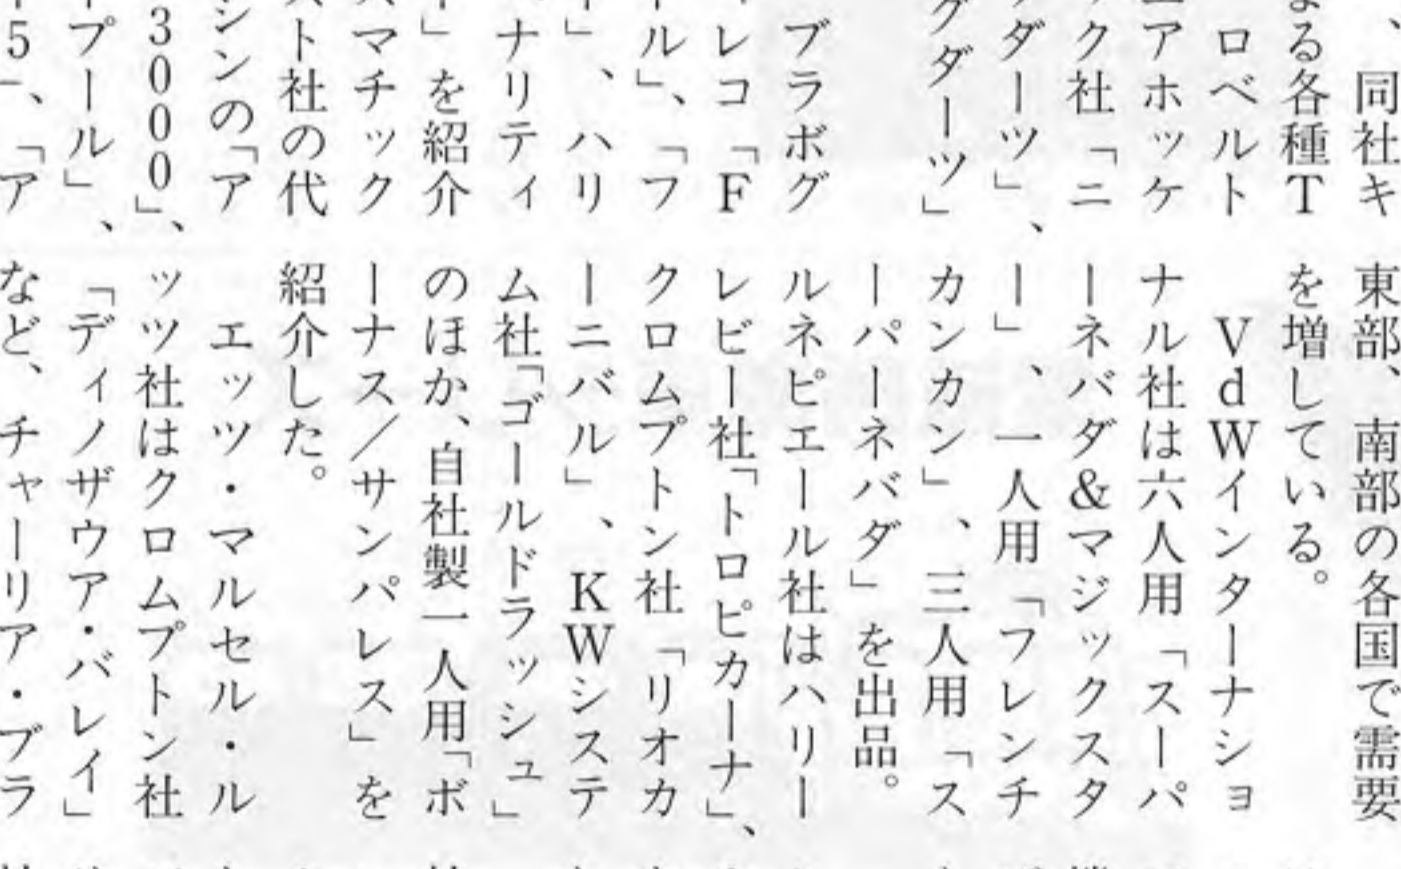 、同社キ
る各種T
ロベルト
アホッケ
ク社「ニ
ダーツ」、
グダーツ」
ブラボグ
レコ「F
ル」、「フ
」、ハリ
ナリティ
」を紹介
スマチック
スト社の代
シンの「ア
3000」、
プール」、
5」、「ア
東部、南部の各国で需要
を増している。
VdWインターナショ
ナル社は六人用「スーパ
ーネバダ&マジックスタ
ー」、一人用「フレンチ
カンカン」、三人用「ス
ーパーネバダ」を出品。
ルネピエール社はハリー
レビー社「トロピカーナ」、
クロムプトン社「リオカ
ーニバル」、KWシステ
ム社「ゴールドラッシュ」
のほか、自社製一人用「ボ
ーナス/サンパレス」を
紹介した。
エッツ・マルセル・ル
ッツ社はクロムプトン社
「ディノザウア・バレイ」
など、チャーリア・ブラ